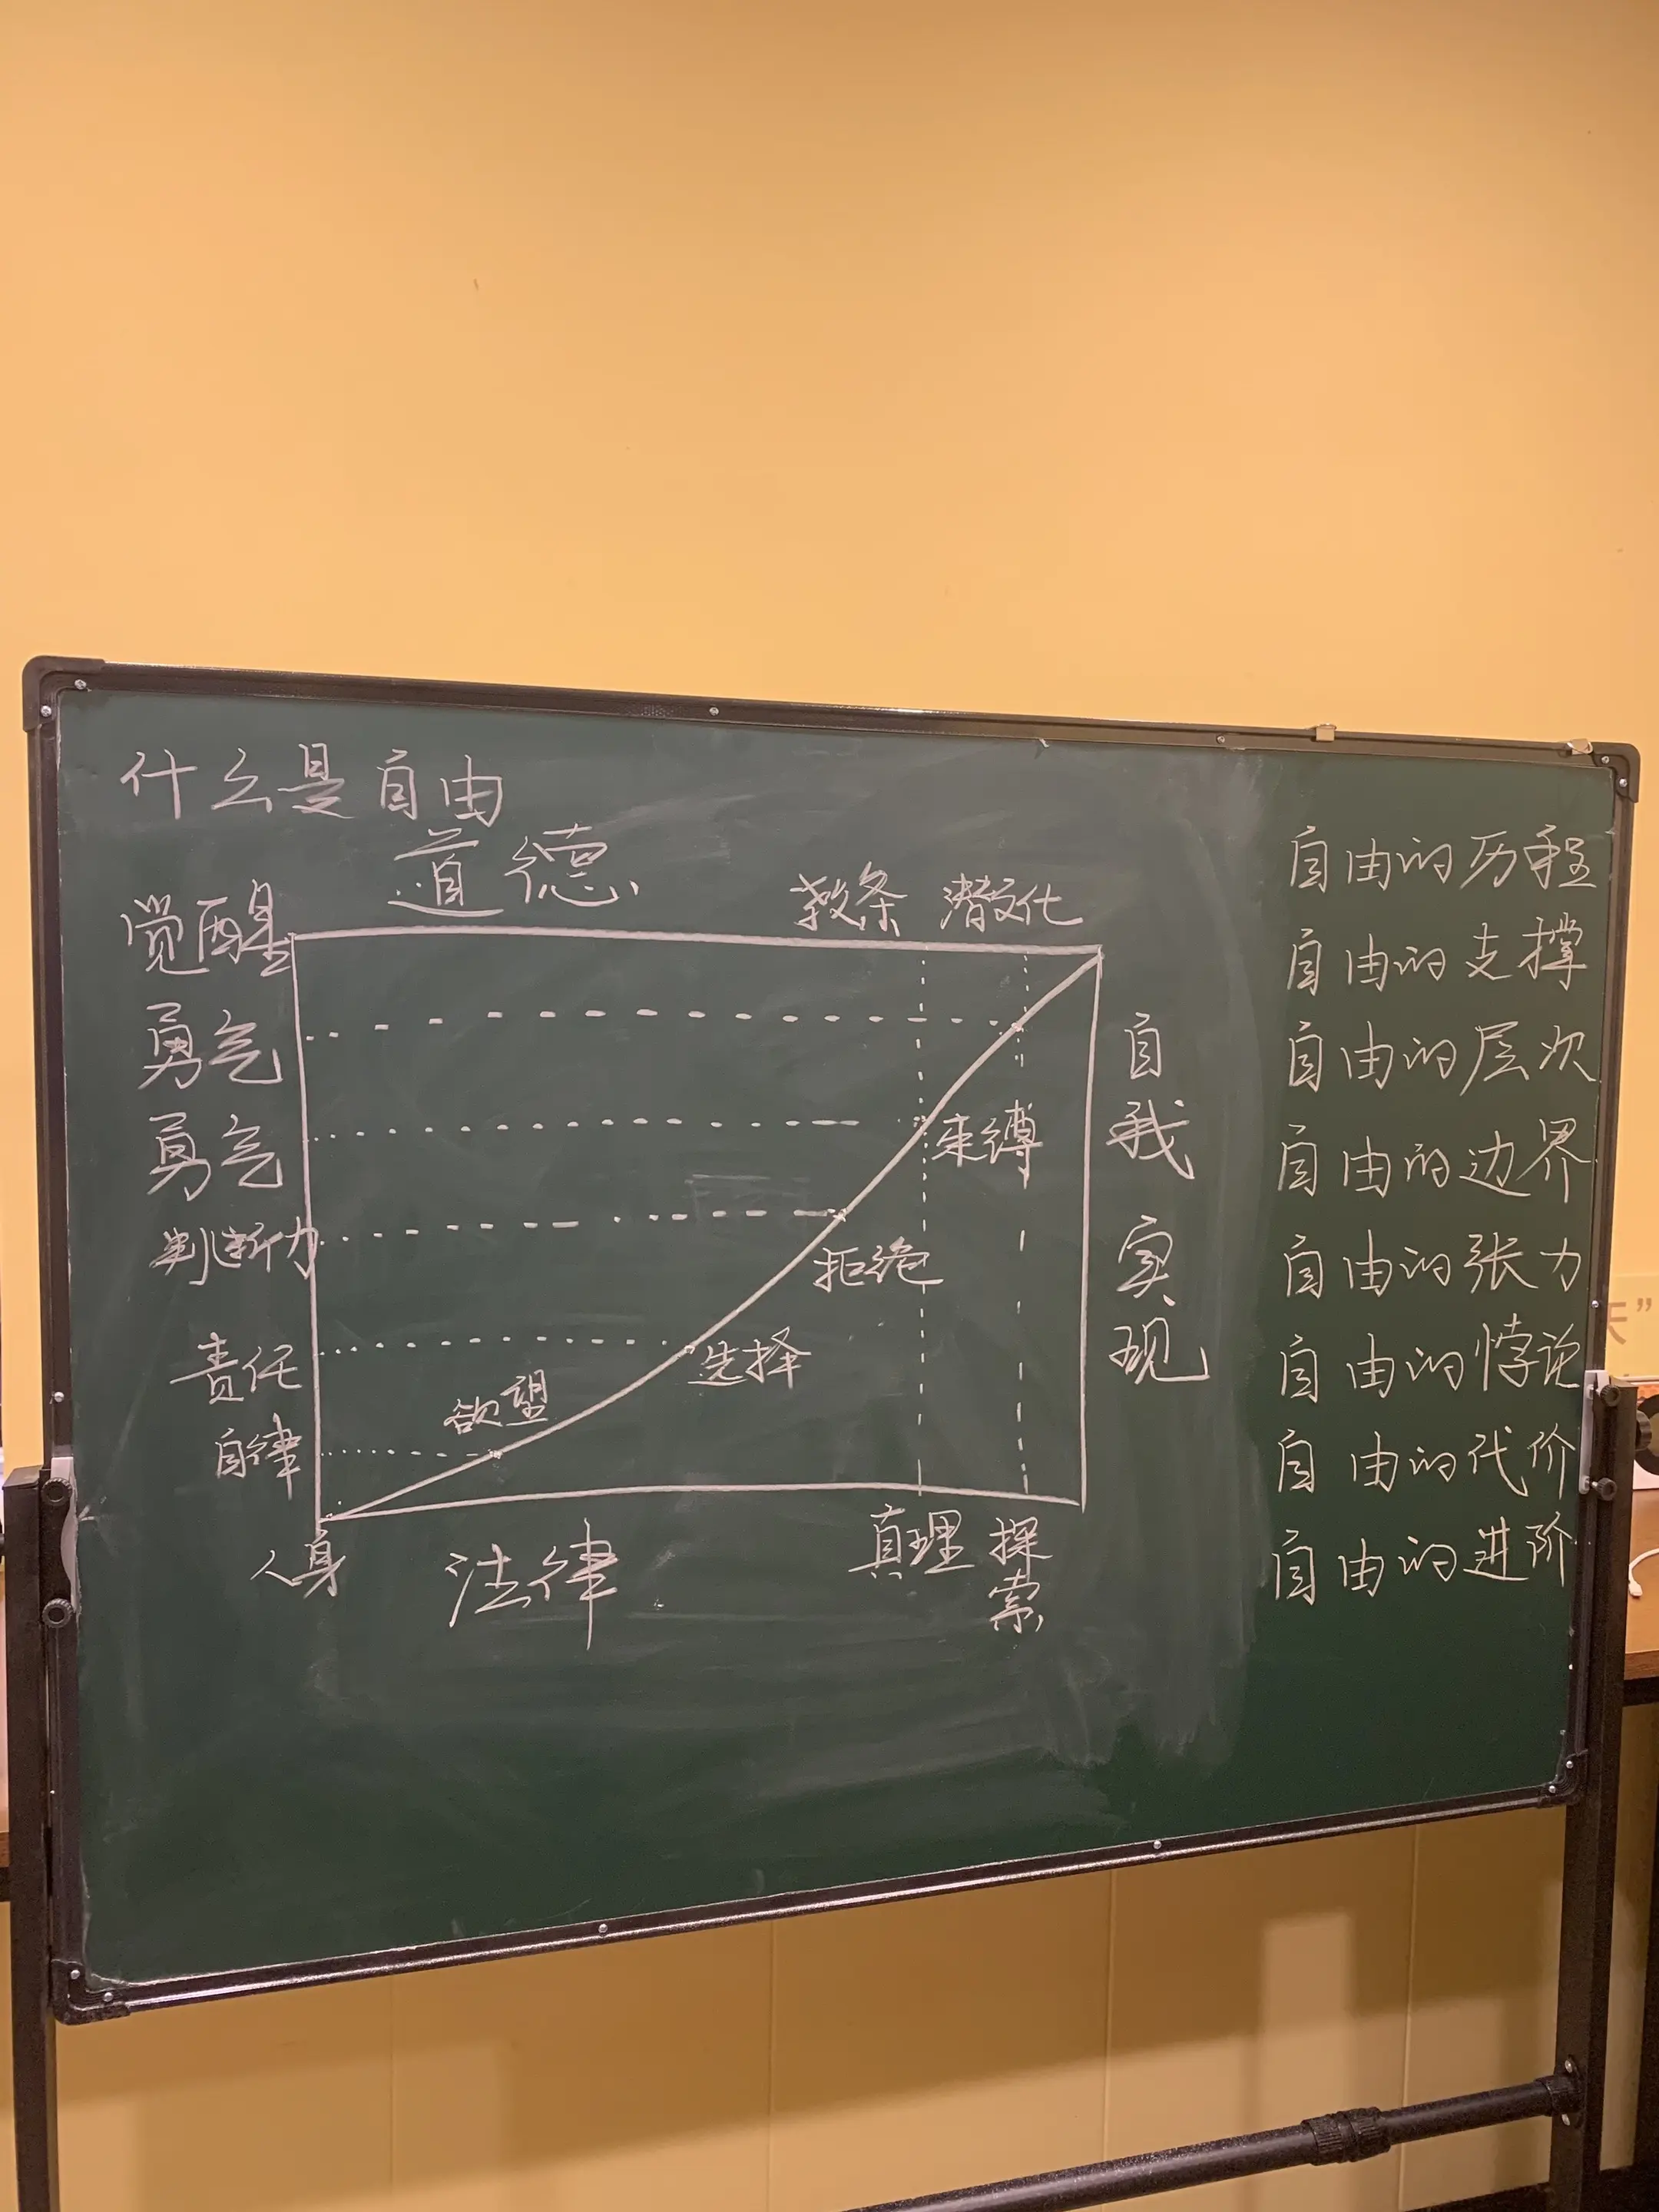 什么是自由
道德
教条 潜文化
觉醒
勇气
勇气
判断力
责任
自律
人身
法律
真理
探索
欲望
选择
拒绝
束缚
自我实现
自由的历程
自由的支撑
自由的层次
自由的边界
自由的张力
自由的悖论
自由的代价
自由的进阶